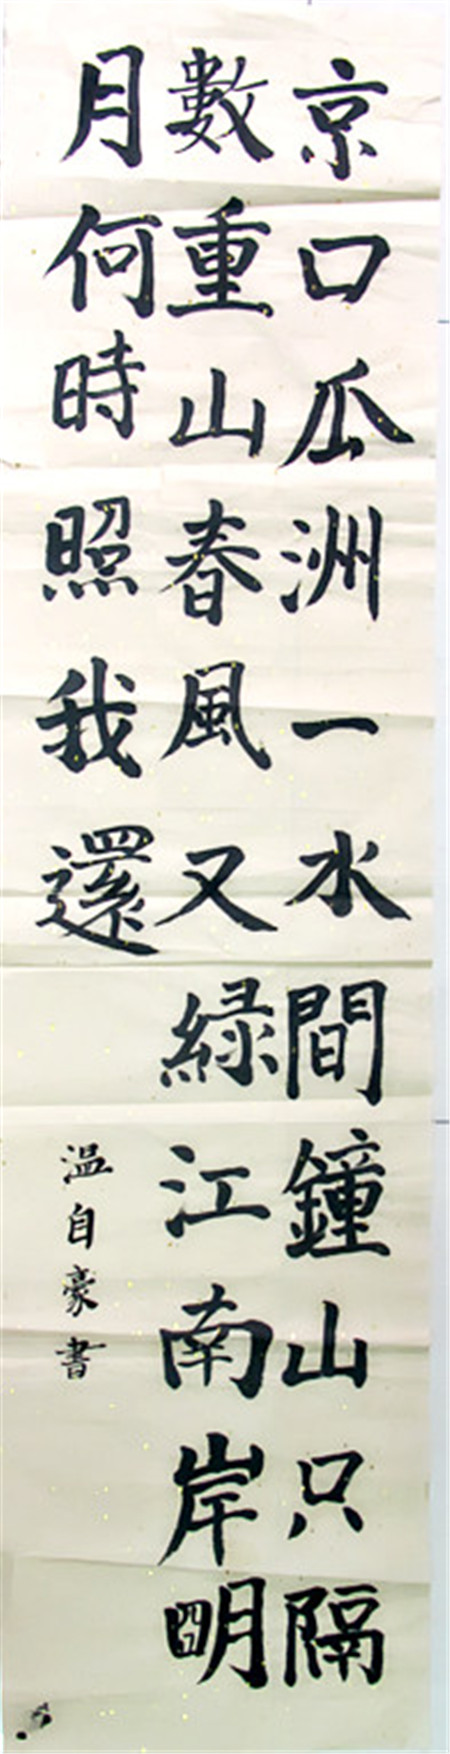 京口瓜洲一水間鐘山只隔
數重山春風又緑江南岸明
月何時照我還
温自豪書